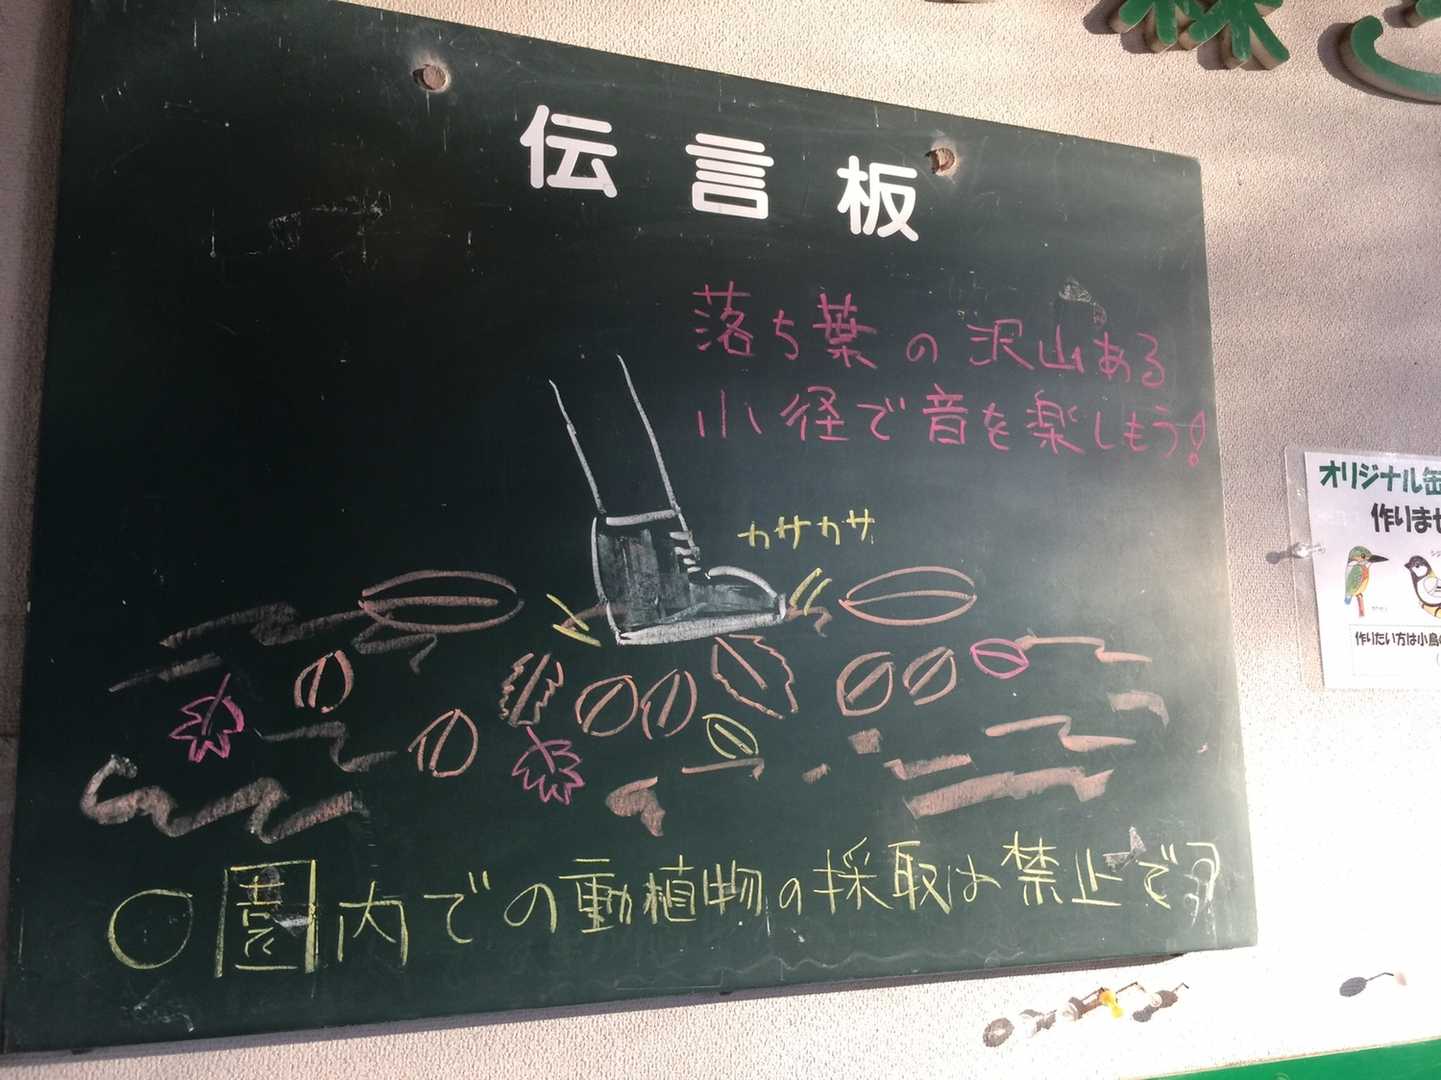 伝言板
落ち葉の沢山ある
小径で音を楽しもう!
カサカサ
○園内での動植物の採取は禁止です
オリジナル缶
作りませ
作りたい方は小鳥の